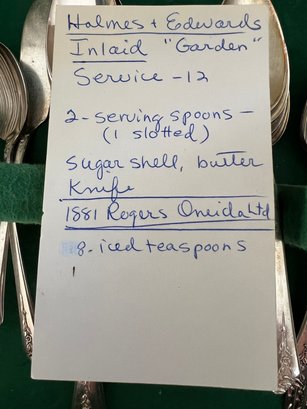 Halmes + Edwards
Inlaid "Garden"
Service - 12
2 - serving spoons -
(1 slotted)
sugar shell, butter
Knife
1881 Rogers Oneida Ltd
8 - iced teaspoons